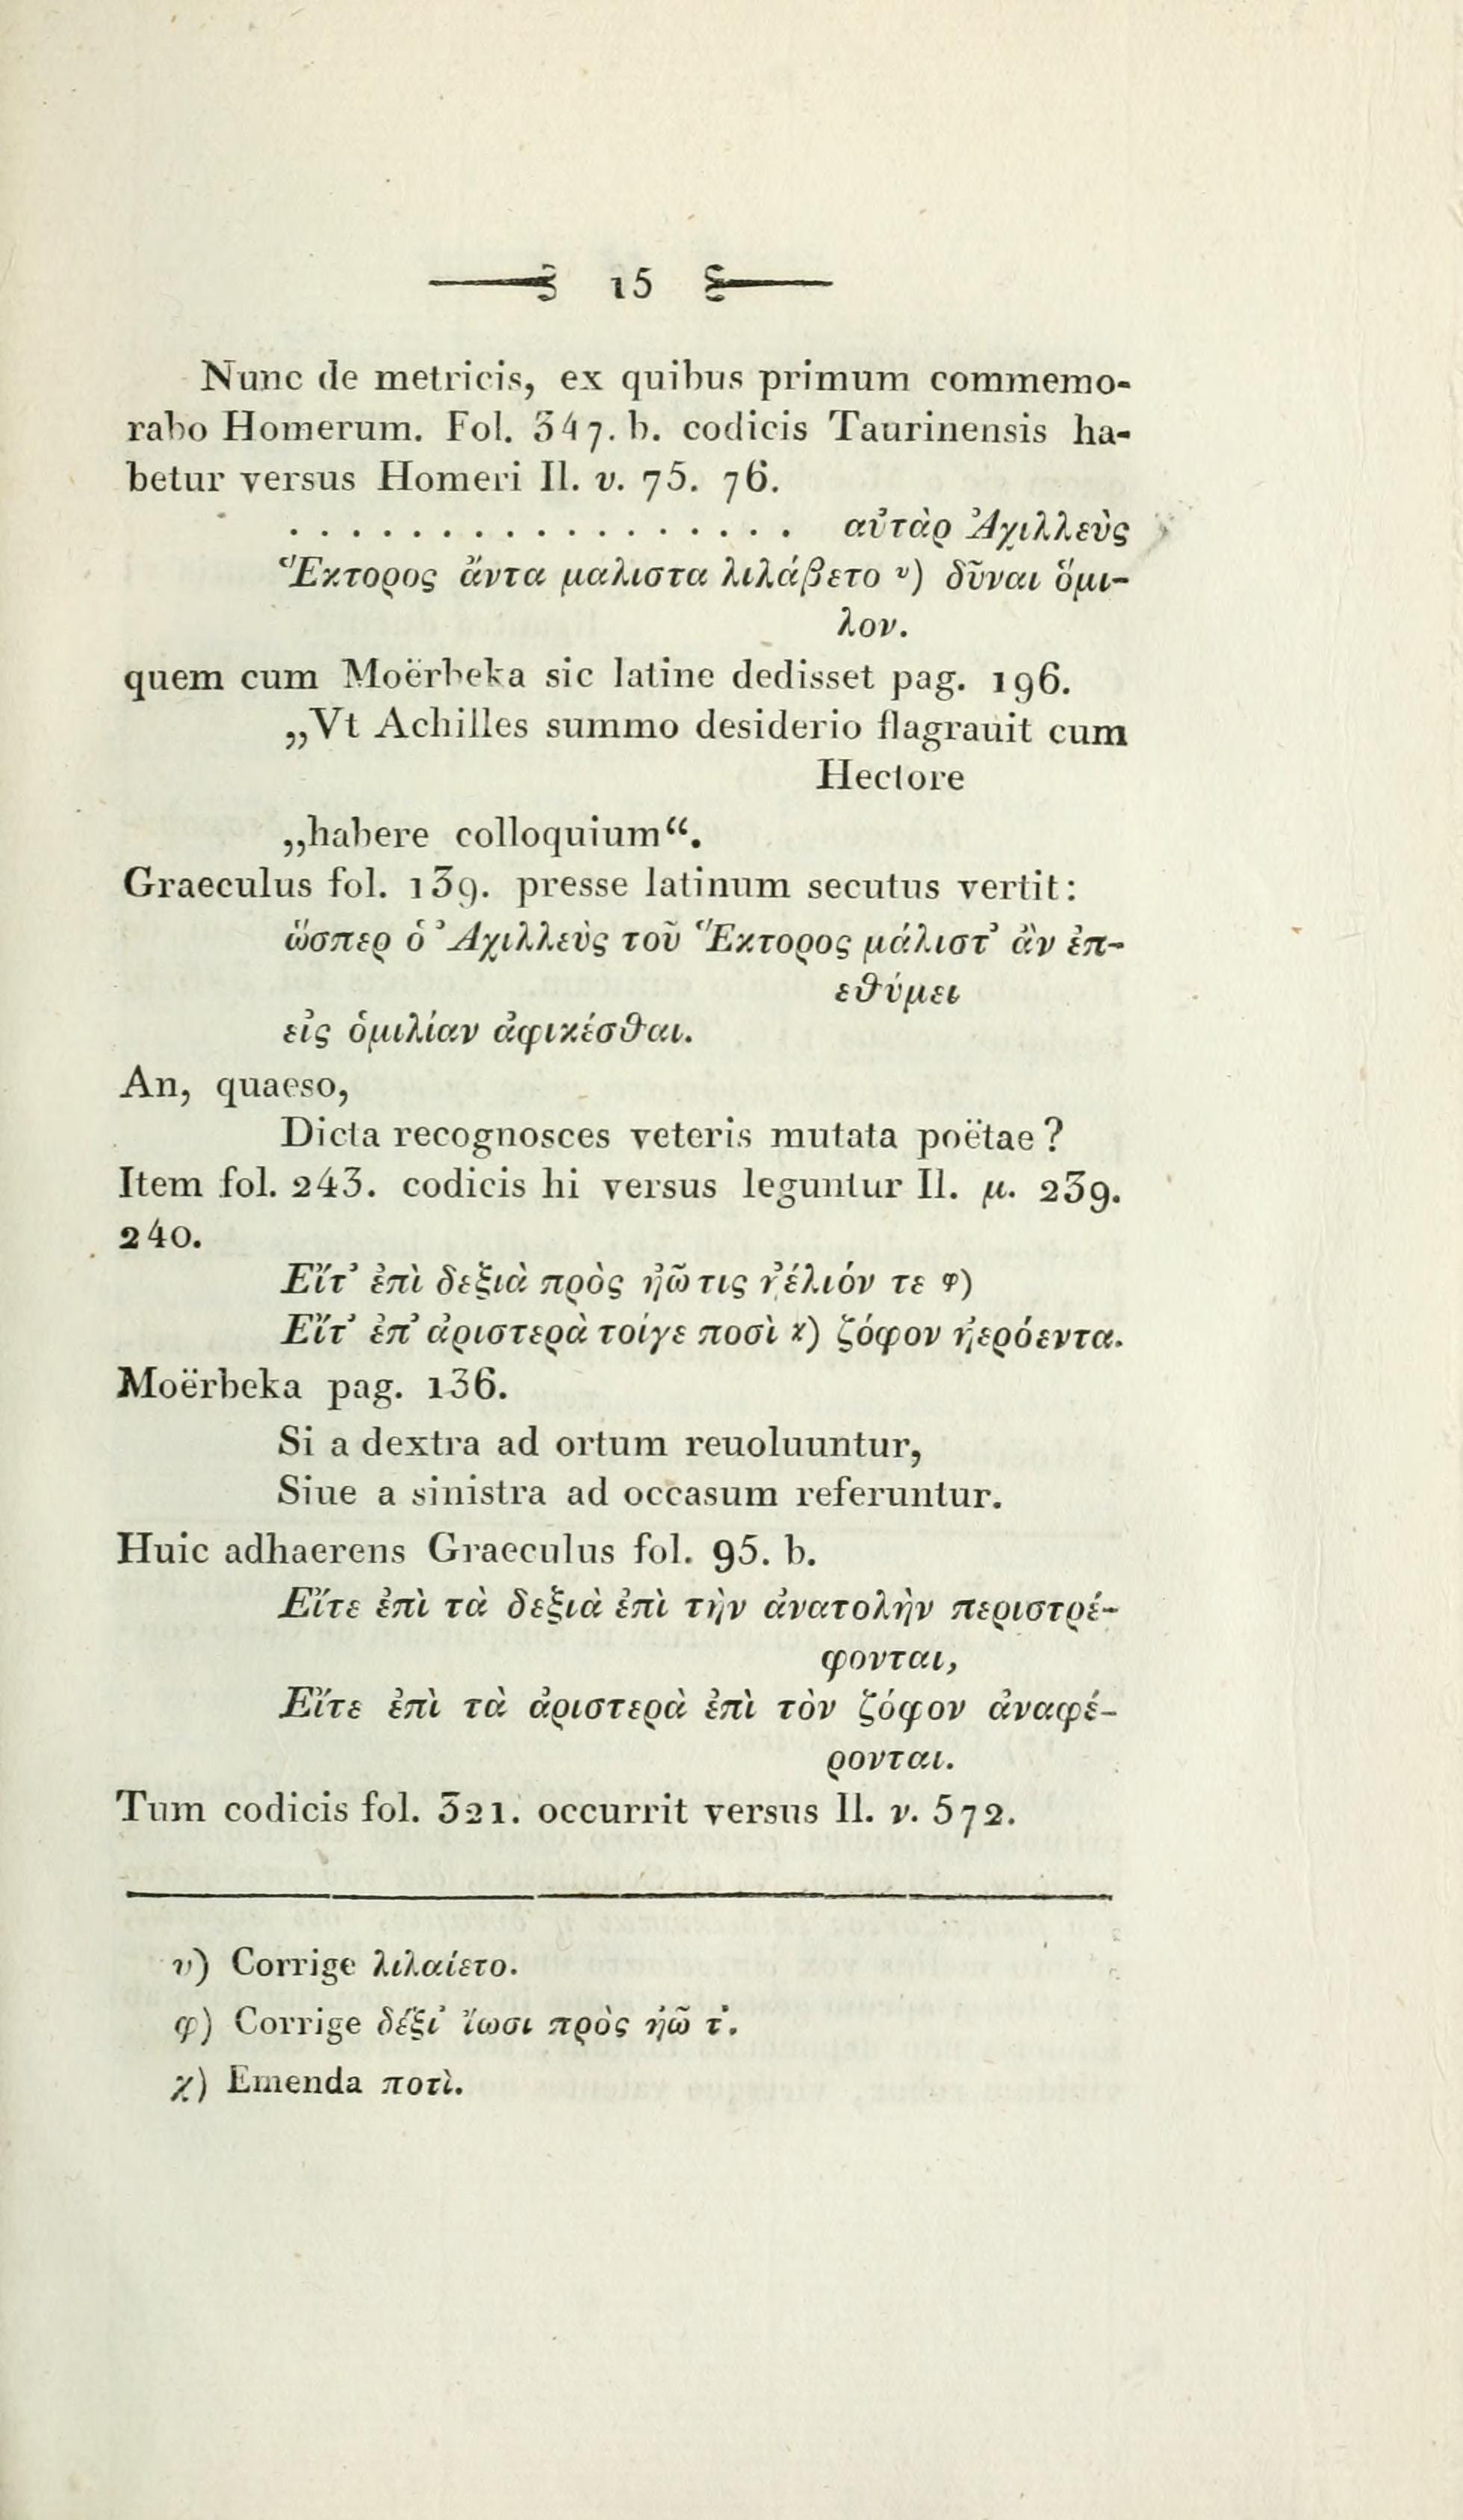 15
Nunc de metricis, ex quibus primum commemo-
rabo Homerum. Fol. 347. b. codicis Taurinensis ha-
betur versus Homeri Il. υ. 75. 76.
. . . . . . . . . . . . . . . . . αὐτὰρ Ἀχιλλεὺς
Ἕκτορος ἄντα μαλιστα λιλάβετο υ) δῦναι ὅμι-
λον.
quem cum Moërbeka sic latine dedisset pag. 196.
„Vt Achilles summo desiderio flagrauit cum
Hectore
„habere colloquium“.
Graeculus fol. 139. presse latinum secutus vertit:
ὥσπερ ὁ Ἀχιλλεὺς τοῦ Ἕκτορος μάλιστ’ ἂν ἐπ-
εθύμει
εἰς ὁμιλίαν ἀφικέσθαι.
An, quaeso,
Dicta recognosces veteris mutata poëtae?
Item fol. 243. codicis hi versus leguntur Il. μ. 239.
240.
Εἴτ’ ἐπὶ δεξιὰ πρὸς ἠῶ τις ἠέλιόν τε φ)
Εἴτ’ ἐπ’ ἀριστερὰ τοίγε ποσὶ χ) ζόφον ἠερόεντα.
Moërbeka pag. 136.
Si a dextra ad ortum reuoluuntur,
Siue a sinistra ad occasum referuntur.
Huic adhaerens Graeculus fol. 95. b.
Εἴτε ἐπὶ τὰ δεξιὰ ἐπὶ τὴν ἀνατολὴν περιστρέ-
φονται,
Εἴτε ἐπὶ τὰ ἀριστερὰ ἐπὶ τὸν ζόφον ἀναφέ-
ρονται.
Tum codicis fol. 321. occurrit versus Il. ν. 572.
υ) Corrige λιλαίετο.
φ) Corrige δέξι’ ἴωσι πρὸς ἠῶ τ’.
χ) Emenda ποτὶ.